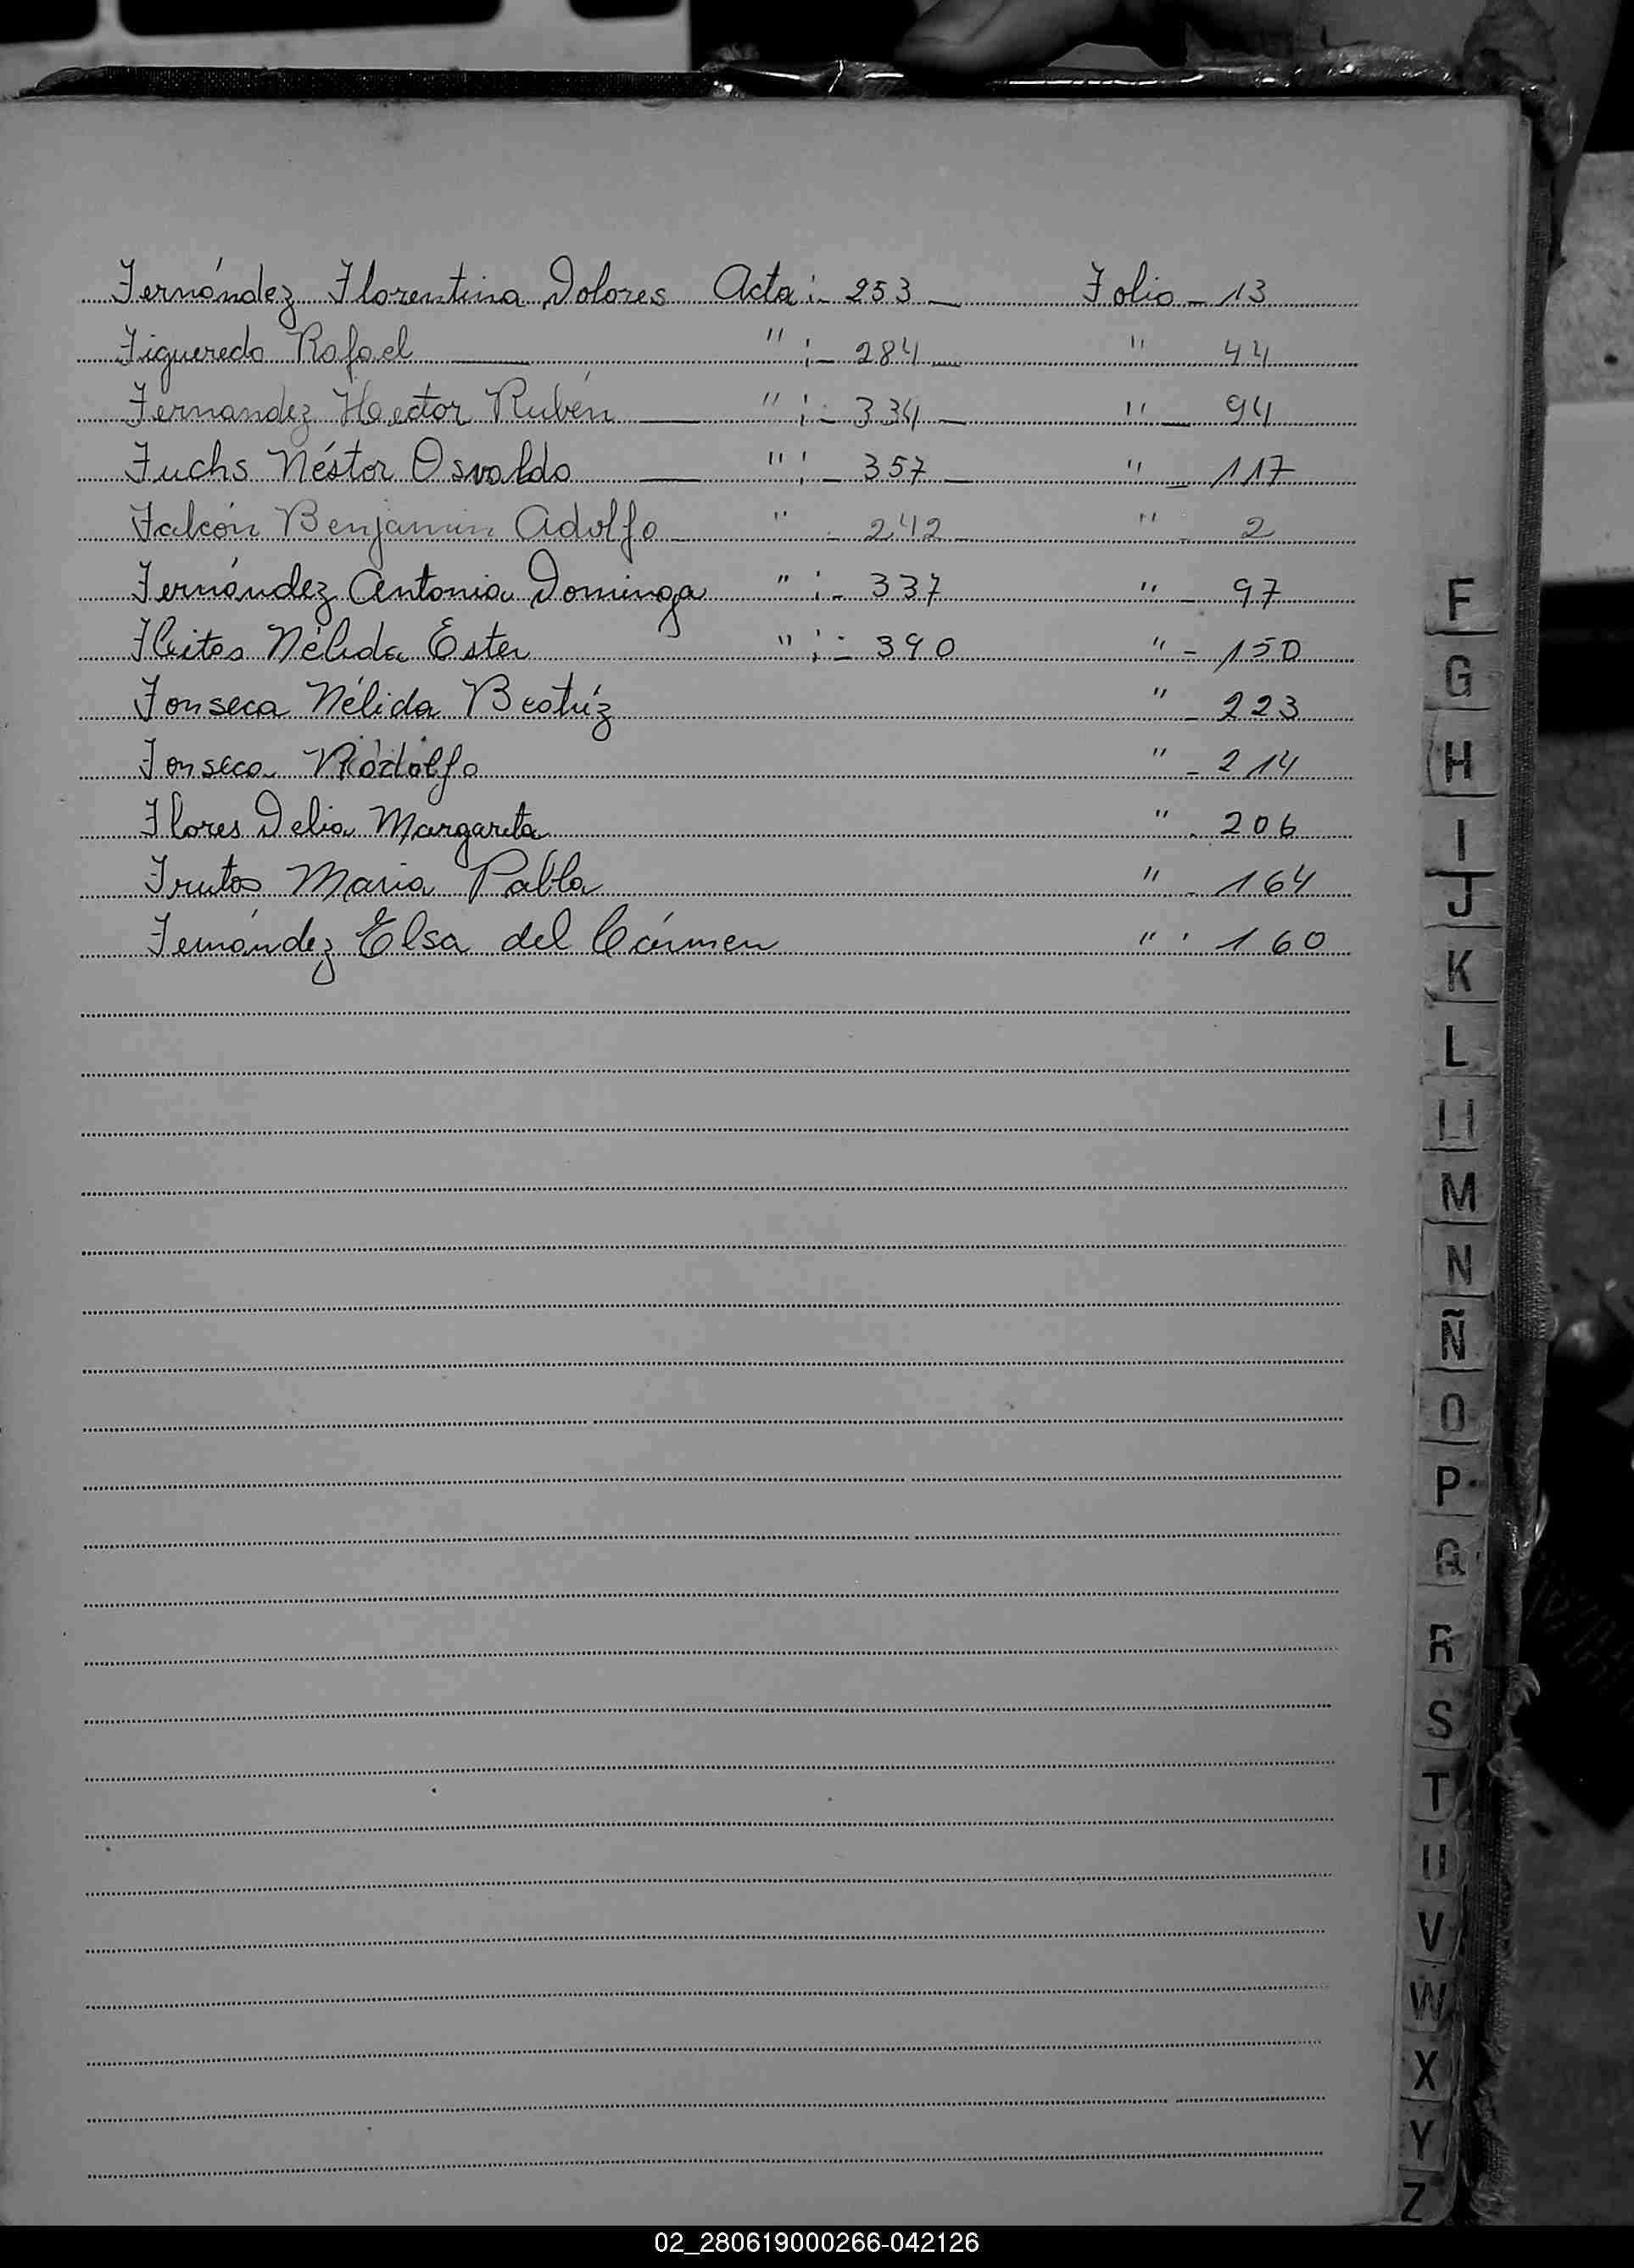 Fernández Florentina Dolores Acta:- 253 — Folio - 13
Figueredo Rafael — " :- 284 — " 44
Fernandez Hector Rubén — " :- 334 — " — 94
Fuchs Néstor Osvaldo — " :- 357 — " - 117
Falcón Benjamin Adolfo " - 242 - " - 2
Fernández Antonia Dominga " :- 337 " - 97
Fleitas Nélida Ester " :- 390 " - 150
Fonseca Nélida Beatríz " - 223
Fonseca Rodolfo " - 214
Flores Delia Margarita " - 206
Frutos Maria Pabla " - 164
Fernández Elsa del Cármen " - 160
F
G
H
I
J
K
L
Ll
M
N
Ñ
O
P
Q
R
S
T
U
V
W
X
Y
Z
02_280619000266-042126